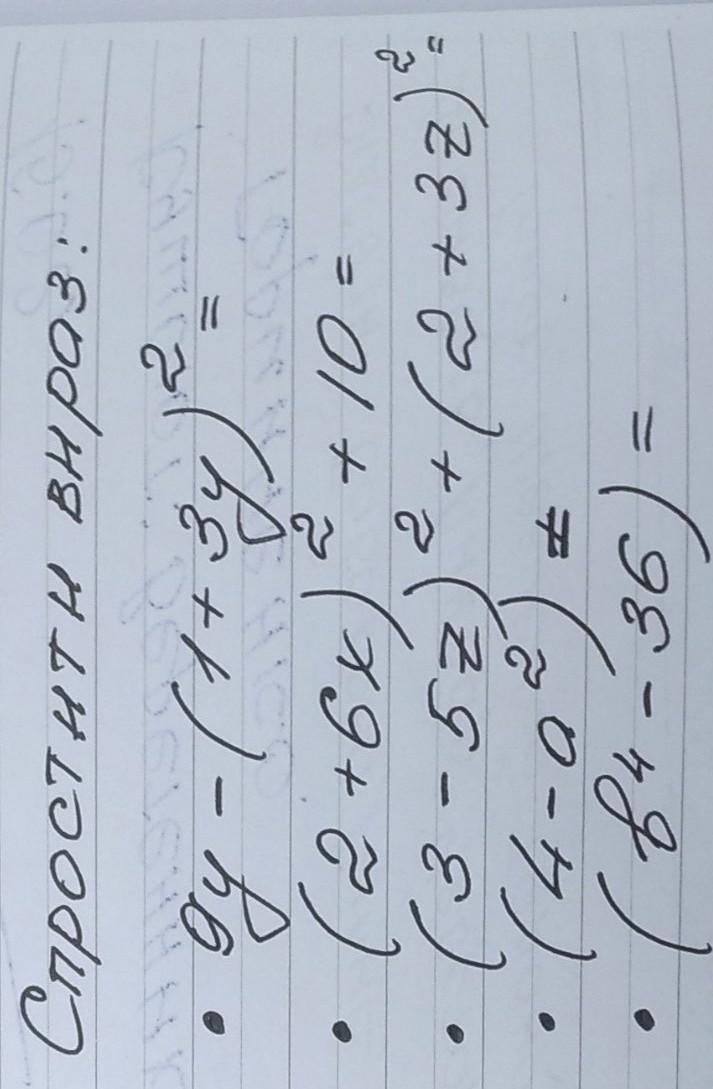 Спростити вираз:
• 9y - (1 + 3y)² =
• (2 + 6x)² + 10 =
• (3 - 5z)² + (2 + 3z)² =
• (4 - a²) =
• (b⁴ - 36) =